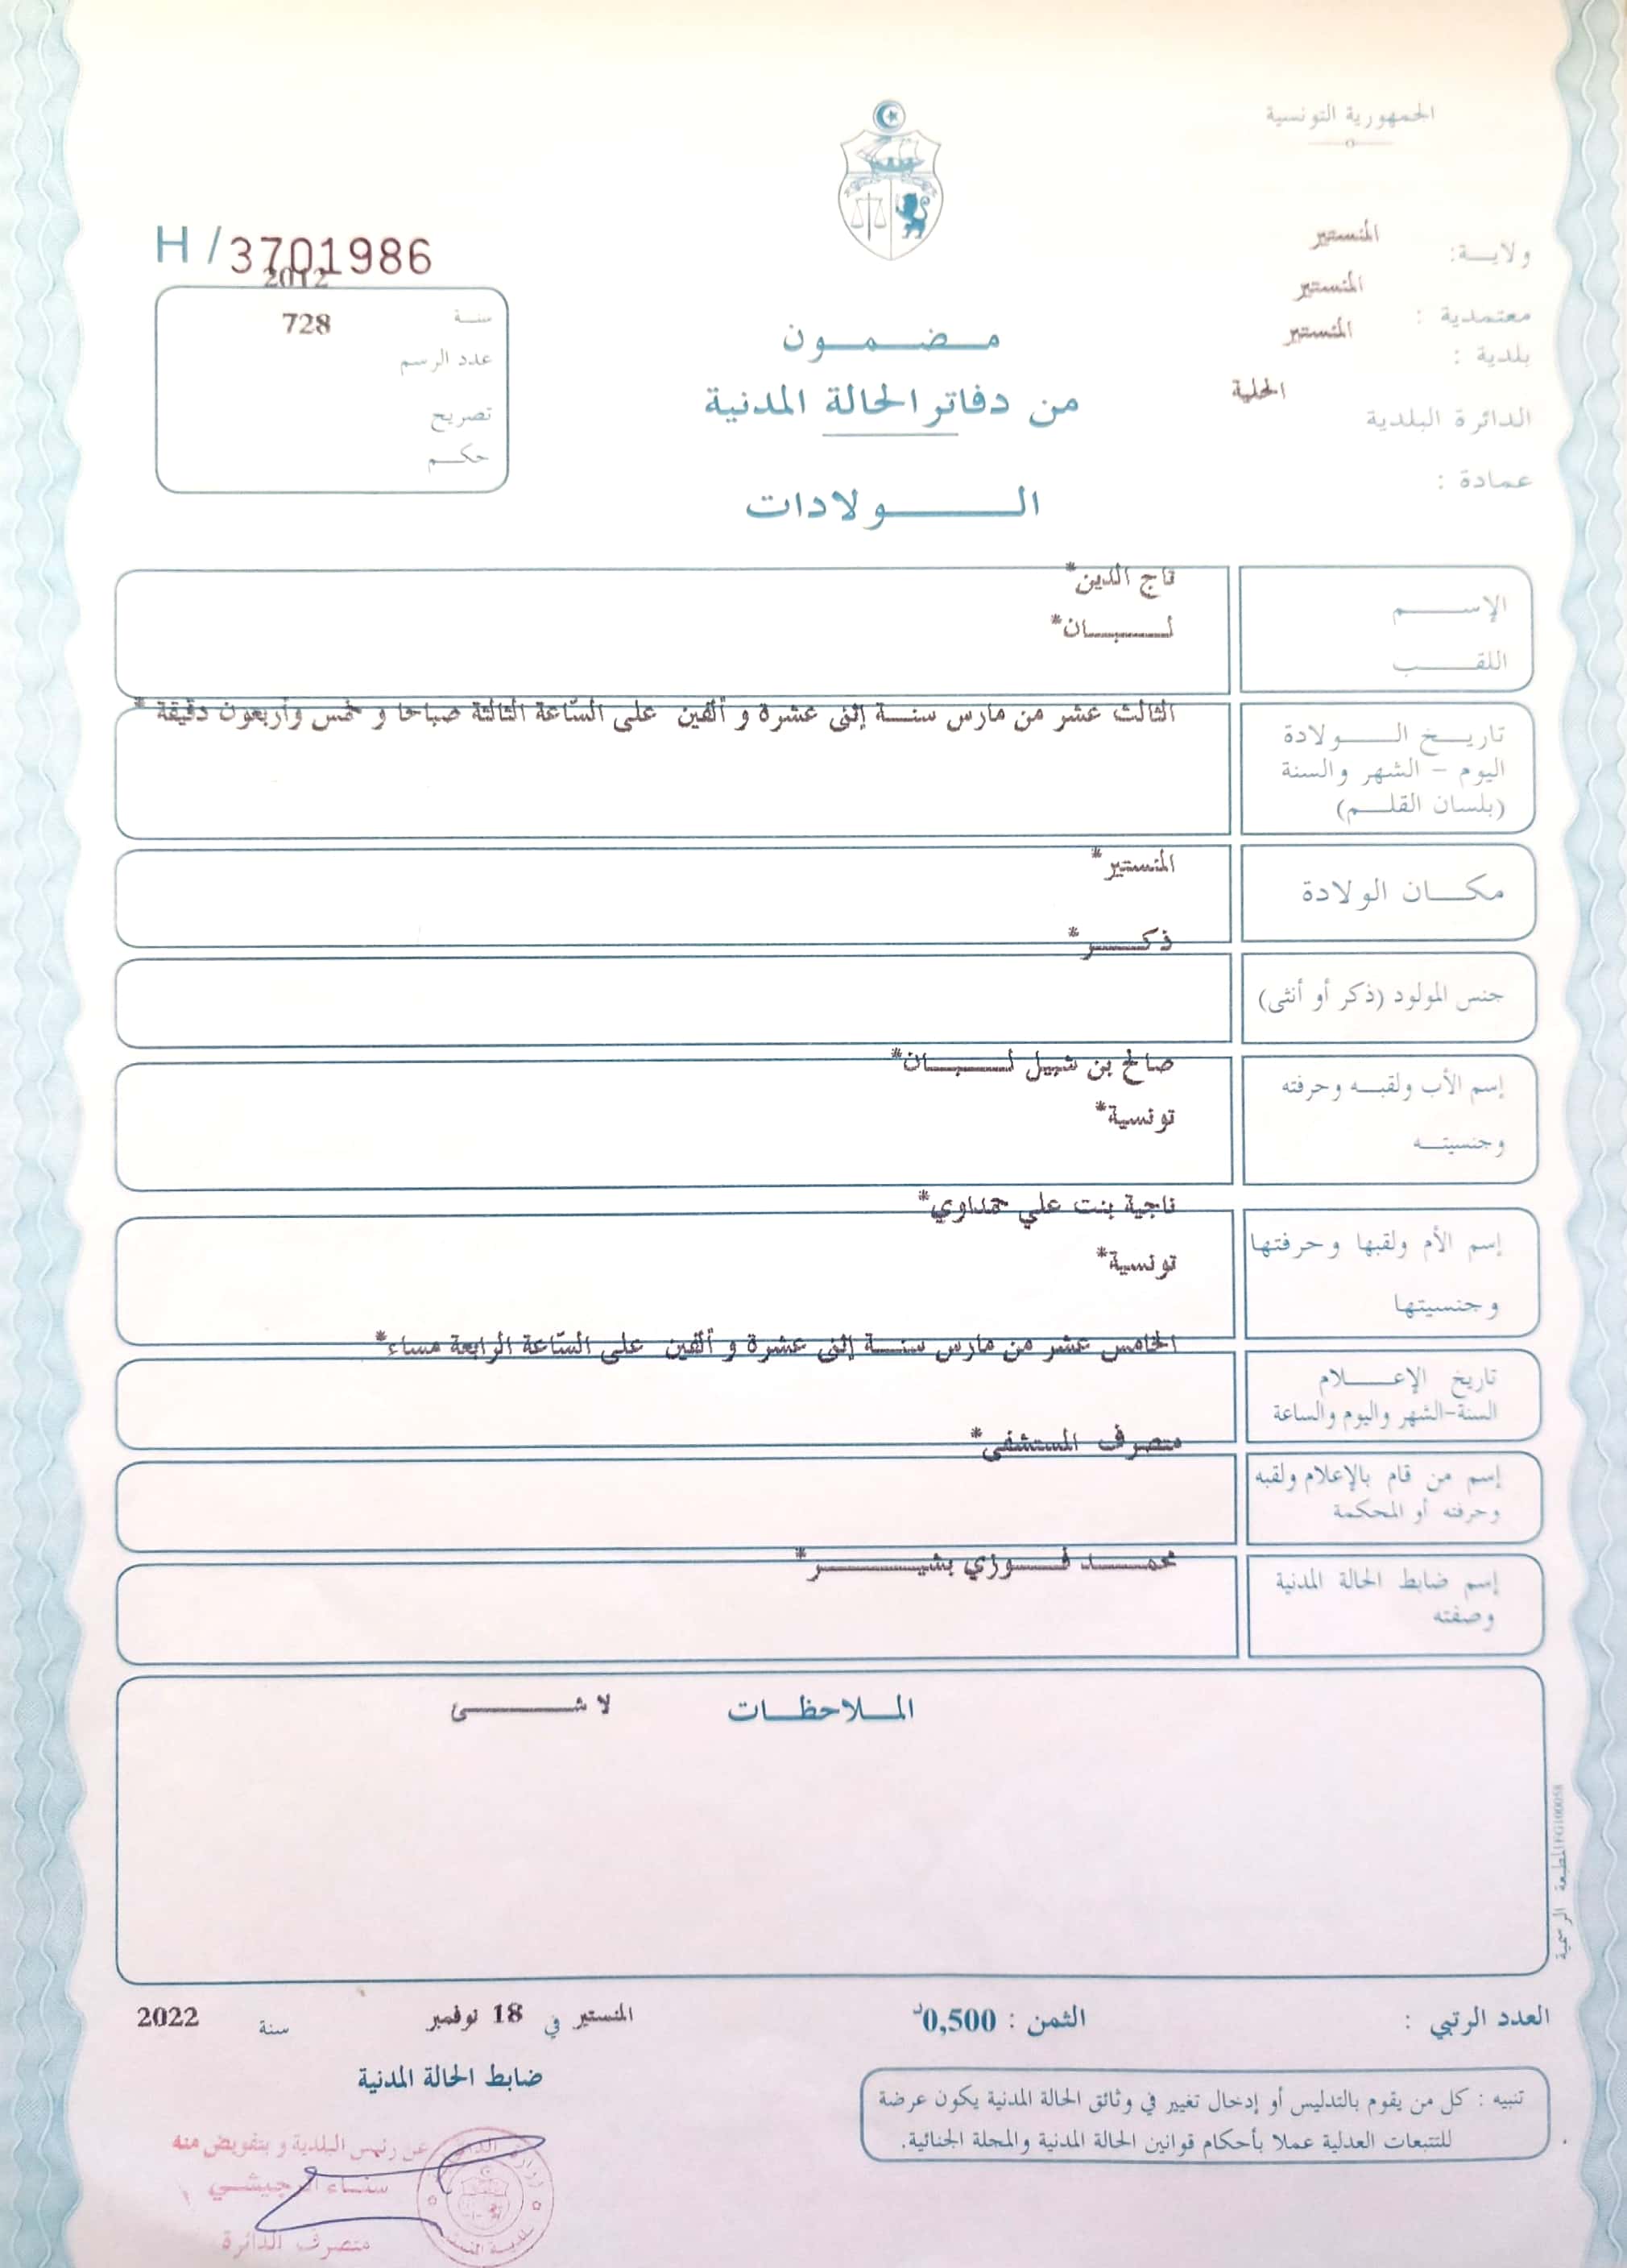 الجمهورية التونسية
ولاية: المنستير
معتمدية : المنستير
بلدية : المنستير
الدائرة البلدية المحلية
عمادة :
H / 3701986
سنة 2012
عدد الرسم 728
تصريح
حكم
مضمون
من دفاتر الحالة المدنية
الولادات
الإسم تاج الدين*
اللقب لبان*
تاريخ الولادة
اليوم – الشهر والسنة
(بلسان القلم)
الثالث عشر من مارس سنة إثنى عشرة و ألفين على السّاعة الثالثة صباحا و خمس وأربعون دقيقة *
مكان الولادة
المنستير*
جنس المولود (ذكر أو أنثى)
ذكر*
إسم الأب ولقبه وحرفته
وجنسيته
صالح بن شبيل لبان*
تونسية*
إسم الأم ولقبها وحرفتها
وجنسيتها
ناجية بنت علي حمداوي*
تونسية*
تاريخ الإعلام
السنة-الشهر واليوم والساعة
الخامس عشر من مارس سنة إثنى عشرة و ألفين على السّاعة الرابعة مساء*
إسم من قام بالإعلام ولقبه
وحرفته أو المحكمة
متصرف المستشفى*
إسم ضابط الحالة المدنية
وصفته
محمد فوزي بشير*
الملاحظات لا شئ
المطبعة الرسمية
العدد الرتبي :
الثمن : 0,500د
المنستير في 18 نوفمبر سنة 2022
ضابط الحالة المدنية
تنبيه : كل من يقوم بالتدليس أو إدخال تغيير في وثائق الحالة المدنية يكون عرضة
للتتبعات العدلية عملا بأحكام قوانين الحالة المدنية والمجلة الجنائية.
عن رئيس البلدية و بتفويض منه
سناء
متصرف الدائرة